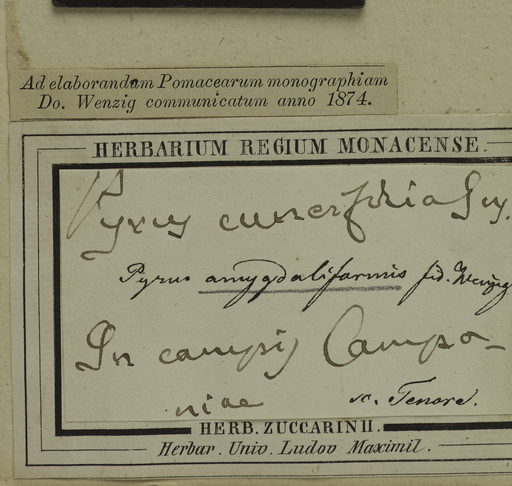 Ad elaborandam Pomacearum monographiam
Do. Wenzig communicatum anno 1874.
HERBARIUM REGIUM MONACENSE.
Pyrus cuneifolia Guss.
Pyrus amygdaliformis fid. Wenzig
In campis Campa-
niae
Tenore.
HERB. ZUCCARINII.
Herbar. Univ. Ludov Maximil.